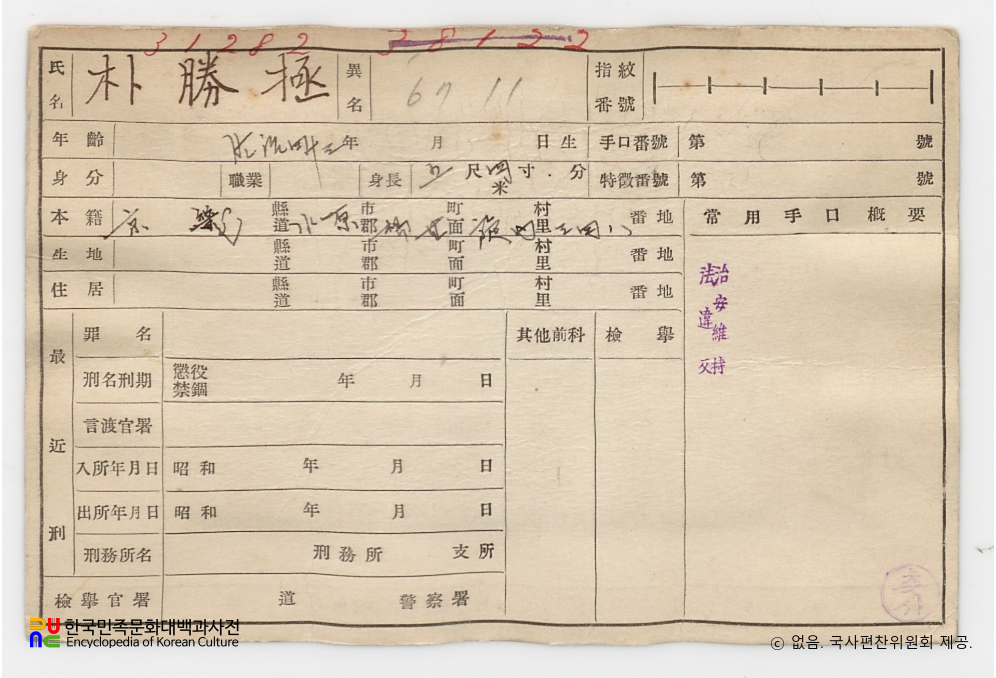 31282 38122
氏名 朴勝極 異名 67 11 指紋番號
年齡 明治四十二年 月 日生 手口番號 第 號
身分 職業 身長 五尺四寸.分 米 特徵番號 第 號
本籍 京 縣道 水原 市郡 町面 村里 番地 常用手口概要
生地 縣道 市郡 町面 村里 番地
住居 縣道 市郡 町面 村里 番地
治安維持
法違反
最近刑
罪名 其他前科 檢擧
刑名刑期 懲役 禁錮 年 月 日
言渡官署
入所年月日 昭和 年 月 日
出所年月日 昭和 年 月 日
刑務所名 刑務所 支所
檢擧官署 道 警察署
한국민족문화대백과사전
Encyclopedia of Korean Culture
© 없음. 국사편찬위원회 제공.